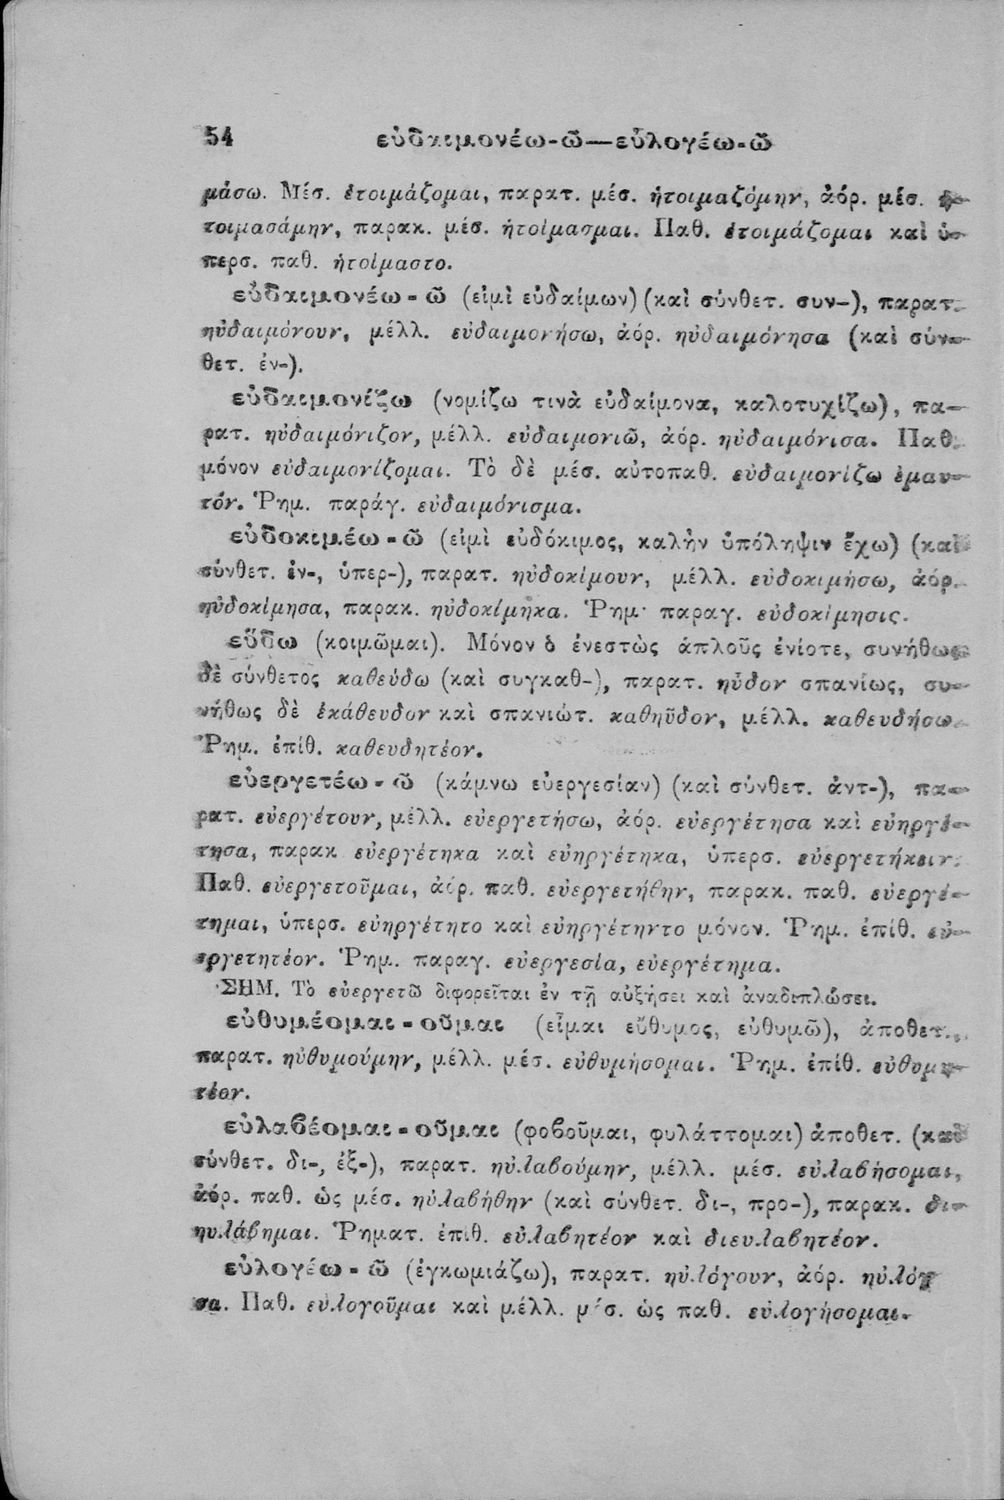 54 εὐδαιμονέω-ῶ—εὐλογέω-ῶ
μάσω. Μέσ. ἑτοιμάζομαι, παρατ. μέσ. ἡτοιμαζόμην, ἀόρ. μέσ. ἡ-
τοιμασάμην, παρακ. μέσ. ἡτοίμασμαι. Παθ. ἑτοιμάζομαι καὶ ὑ-
περσ. παθ. ἡτοίμαστο.
εὐδαιμονέω-ῶ (εἰμὶ εὐδαίμων) (καὶ σύνθετ. συν-), παρατ.
ηὐδαιμόνουν, μέλλ. εὐδαιμονήσω, ἀόρ. ηὐδαιμόνησα (καὶ σύν-
θετ. ἐν-).
εὐδαιμονίζω (νομίζω τινὰ εὐδαίμονα, καλοτυχίζω), πα-
ρατ. ηὐδαιμόνιζον, μέλλ. εὐδαιμονιῶ, ἀόρ. ηὐδαιμόνισα. Παθ.
μόνον εὐδαιμονίζομαι. Τὸ δὲ μέσ. αὐτοπαθ. εὐδαιμονίζω ἐμαυ-
τόν. Ῥημ. παράγ. εὐδαιμόνισμα.
εὐδοκιμέω-ῶ (εἰμὶ εὐδόκιμος, καλὴν ὑπόληψιν ἔχω) (καὶ
σύνθετ. ἐν-, ὑπερ-), παρατ. ηὐδοκίμουν, μέλλ. εὐδοκιμήσω, ἀόρ.
ηὐδοκίμησα, παρακ. ηὐδοκίμηκα. Ῥημ· παραγ. εὐδοκίμησις.
εὕδω (κοιμῶμαι). Μόνον ὁ ἐνεστὼς ἁπλοῦς ἐνίοτε, συνήθως
δὲ σύνθετος καθεύδω (καὶ συγκαθ-), παρατ. ηὗδον σπανίως, συ-
νήθως δὲ ἐκάθευδον καὶ σπανιώτ. καθηῦδον, μέλλ. καθευδήσω.
Ῥημ. ἐπίθ. καθευδητέον.
εὐεργετέω-ῶ (κάμνω εὐεργεσίαν) (καὶ σύνθετ. ἀντ-), πα-
ρατ. εὐεργέτουν, μέλλ. εὐεργετήσω, ἀόρ. εὐεργέτησα καὶ εὐηργέ-
τησα, παρακ εὐεργέτηκα καὶ εὐηργέτηκα, ὑπερσ. εὐεργετήκειν.
Παθ. εὐεργετοῦμαι, ἀόρ. παθ. εὐεργετήθην, παρακ. παθ. εὐεργέ-
τημαι, ὑπερσ. εὐηργέτητο καὶ εὐηργέτηντο μόνον. Ῥημ. ἐπίθ. εὐ-
εργετητέον. Ῥημ. παραγ. εὐεργεσία, εὐεργέτημα.
ΣΗΜ. Τὸ εὐεργετῶ διφορεῖται ἐν τῇ αὐξήσει καὶ ἀναδιπλώσει.
εὐθυμέομαι-οῦμαι (εἶμαι εὔθυμος, εὐθυμῶ), ἀποθετ.,
παρατ. ηὐθυμούμην, μέλλ. μέσ. εὐθυμήσομαι. Ῥημ. ἐπίθ. εὐθυμη-
τέον.
εὐλαβέομαι-οῦμαι (φοβοῦμαι, φυλάττομαι) ἀποθετ. (καὶ
σύνθετ. δι-, ἐξ-), παρατ. ηὐλαβούμην, μέλλ. μέσ. εὐλαβήσομαι,
ἀόρ. παθ. ὡς μέσ. ηὐλαβήθην (καὶ σύνθετ. δι-, προ-), παρακ. δι-
ηυλάβημαι. Ῥηματ. ἐπίθ. εὐλαβητέον καὶ διευλαβητέον.
εὐλογέω-ῶ (ἐγκωμιάζω), παρατ. ηὐλόγουν, ἀόρ. ηὐλόγη
σα. Παθ. εὐλογοῦμαι καὶ μέλλ. μέσ. ὡς παθ. εὐλογήσομαι.